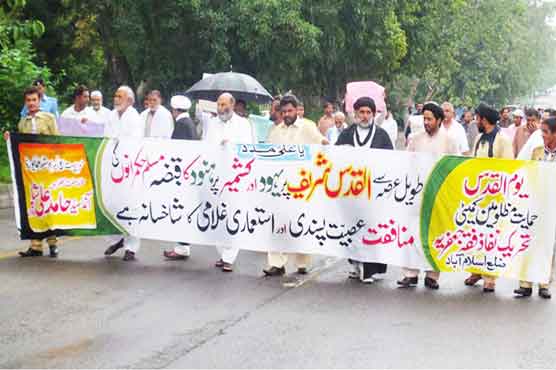 یا علیؑ مدد
یوم القدس
حمایت مظلومین کمیٹی
تحریک نفاذ فقہ جعفریہ
ضلع اسلام آباد
طویل عرصہ سے القدس شریف پر یہود اور کشمیر پر ہنود کا قبضہ مسلم حکمرانوں کی
منافقت عصبیت پسندی اور استعماری غلامی کا شاخسانہ ہے
آغا سید حامد علی شاہ